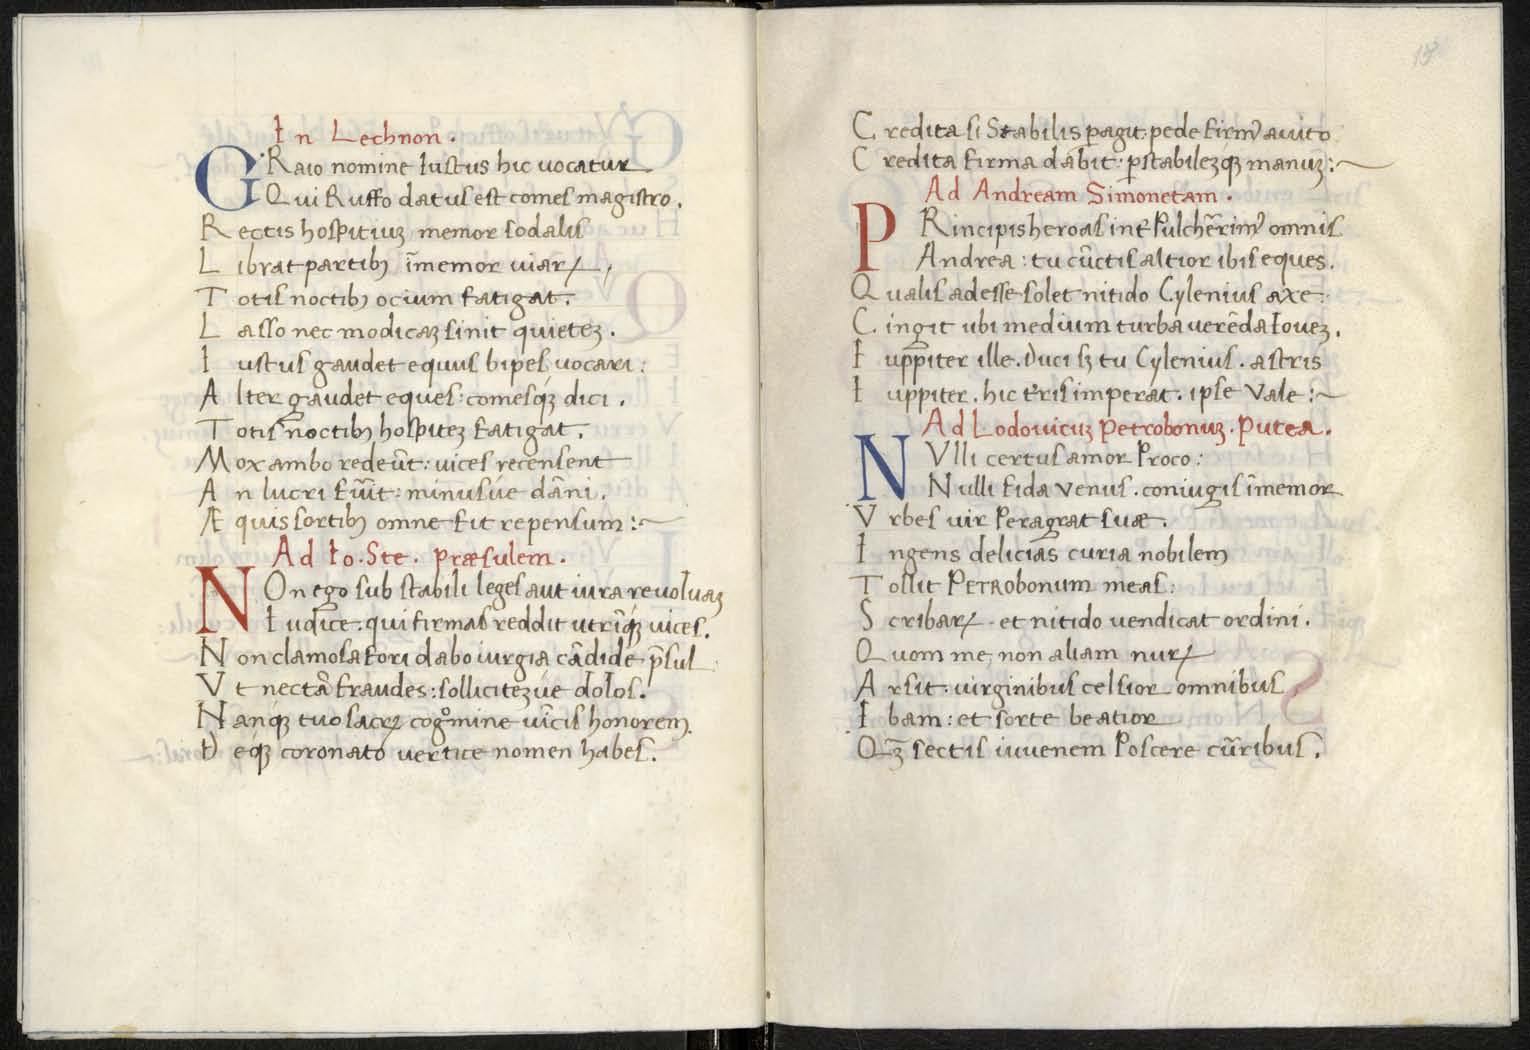 In Lechnon.
GRaio nomine Iustus hic uocatur
Qui Ruffo datus est comes magistro.
Rectis hospitiuꝫ memor sodalis
Librat partibꝫ īmemor uiaꝝ,
Totis noctibꝫ ocium fatigat.
Lasso nec modicaꝫ sinit quieteꝫ.
Iustus gaudet equus bipes uocari:
Alter gaudet eques: comesqꝫ dici.
Totis noctibꝫ hospiteꝫ fatigat.
Mox ambo redeūt: uices recensent
An lucri fūīt: minus úe dāni.
Æquis sortibꝫ omne fit repensum:~
Ad Io. Ste. præsulem.
NOn ego sub stabili leges aut iura reuoluaꝫ
Iudice. qui firmas reddit utrīqꝫ uices.
Non clamosa fori dabo iurgia cādide p̄sul
Vt nectā fraudes: solliciteꝫ úe dolos.
Nanqꝫ tuo sacꝝ cogͦmine uīcis honorem
Deqꝫ coronato uertice nomen habes.
Credita si Stabilis ꝑagit pede firmꝰ auito
Credita firma dabit: ꝑstabileꝫqꝫ manuꝫ:~
Ad Andream Simonetam.
PRincipis heroas int̄ pulchērimꝰ omnis
Andrea: tu cūctis altior ibis eques.
Qualis adesse solet nitido Cylenius axe:
Cingit ubi medium turba uerēda Ioueꝫ.
Iuppiter ille. Duci sꝫ tu Cylenius. astris
Iuppiter. hic t̄ris imperat. ipse Vale:~
Ad Lodouicuꝫ petrobonuꝫ. putea.
NVlli certus amor proco:
Nulli fida venus. coniugis īmemor
Vrbes uir peragrat suæ.
Ingens delicias curia nobilem
Tollit PETROBONUM meas:
Scribaꝝ. et nitido uendicat ordini.
Quom me, non aliam nuꝝ
Arsit. uirginibus celsior omnibus
Ibam: et sorte beatior
Qꝫ̄ sectis iuuenem poscere cūribus.